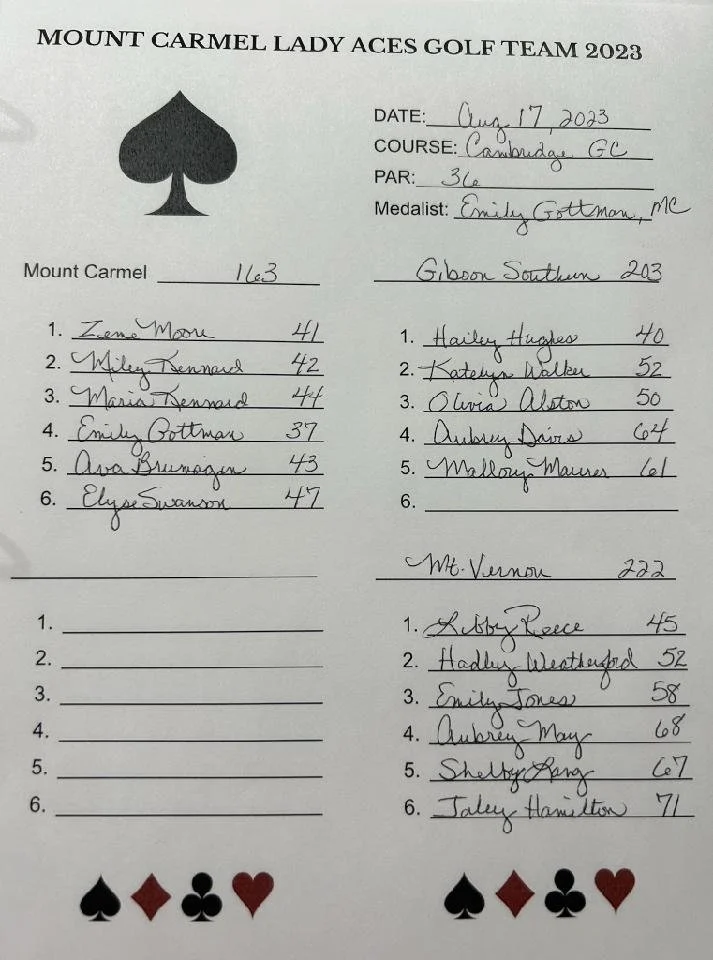 MOUNT CARMEL LADY ACES GOLF TEAM 2023
DATE: Aug 17, 2023
COURSE: Cambridge GC
PAR: 36
Medalist: Emily Gottman, MC
Mount Carmel 163
1. Moore 41
2. Miley Kennard 42
3. Maria Kennard 44
4. Emily Gottman 37
5. Ava Brumagen 43
6. Elyse Swanson 47
Gibson Southern 203
1. Hailey Hughes 40
2. Katelyn Walker 52
3. Olivia Alston 50
4. Aubrey Davis 64
5. Mallory Maurer 61
6.
1.
2.
3.
4.
5.
6.
Mt. Vernon 222
1. Libby Reece 45
2. Hadley Weatherford 52
3. Emily Jones 58
4. Aubrey May 68
5. Shelby Lang 67
6. Jaley Hamilton 71